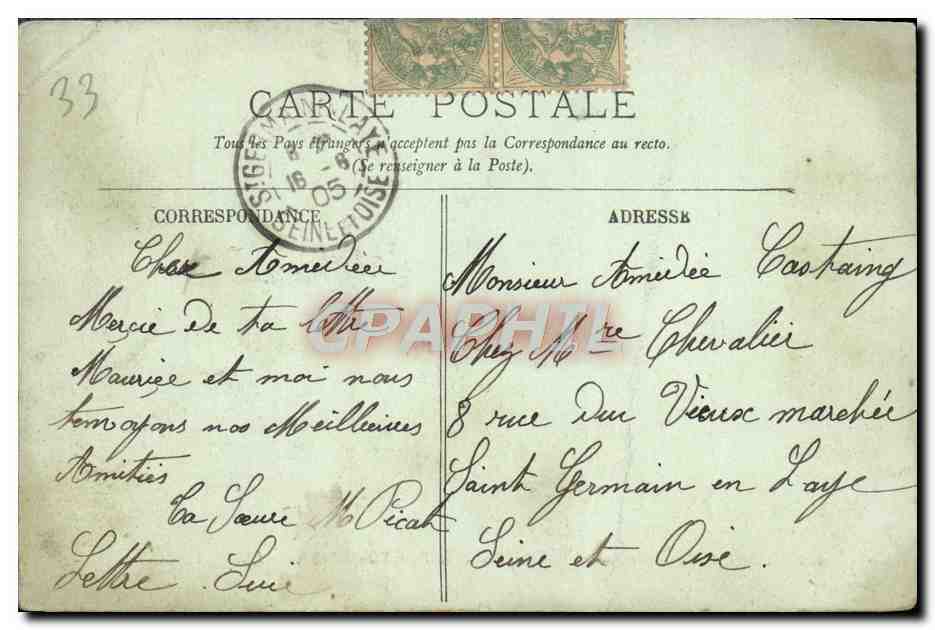 33
CARTE POSTALE
Tous les Pays étrangers n'acceptent pas la Correspondance au recto.
(Se renseigner à la Poste).
ST GERMAIN-EN-LAYE
16 - 6
05
SEINE ET OISE
CORRESPONDANCE
Cher Amedée
Merçie de ta lettre
Mauriçe et moi nous
temvoyons nos Meillieures
Amitiés
Ta Sœure M Picat
Lettre Suie
ADRESSE
Monsieur Amédée Castaing
Chez Mre Chevalier
8 rue du Vieux marchée
Saint Germain en Laye
Seine et Oise.
CPAPHIL